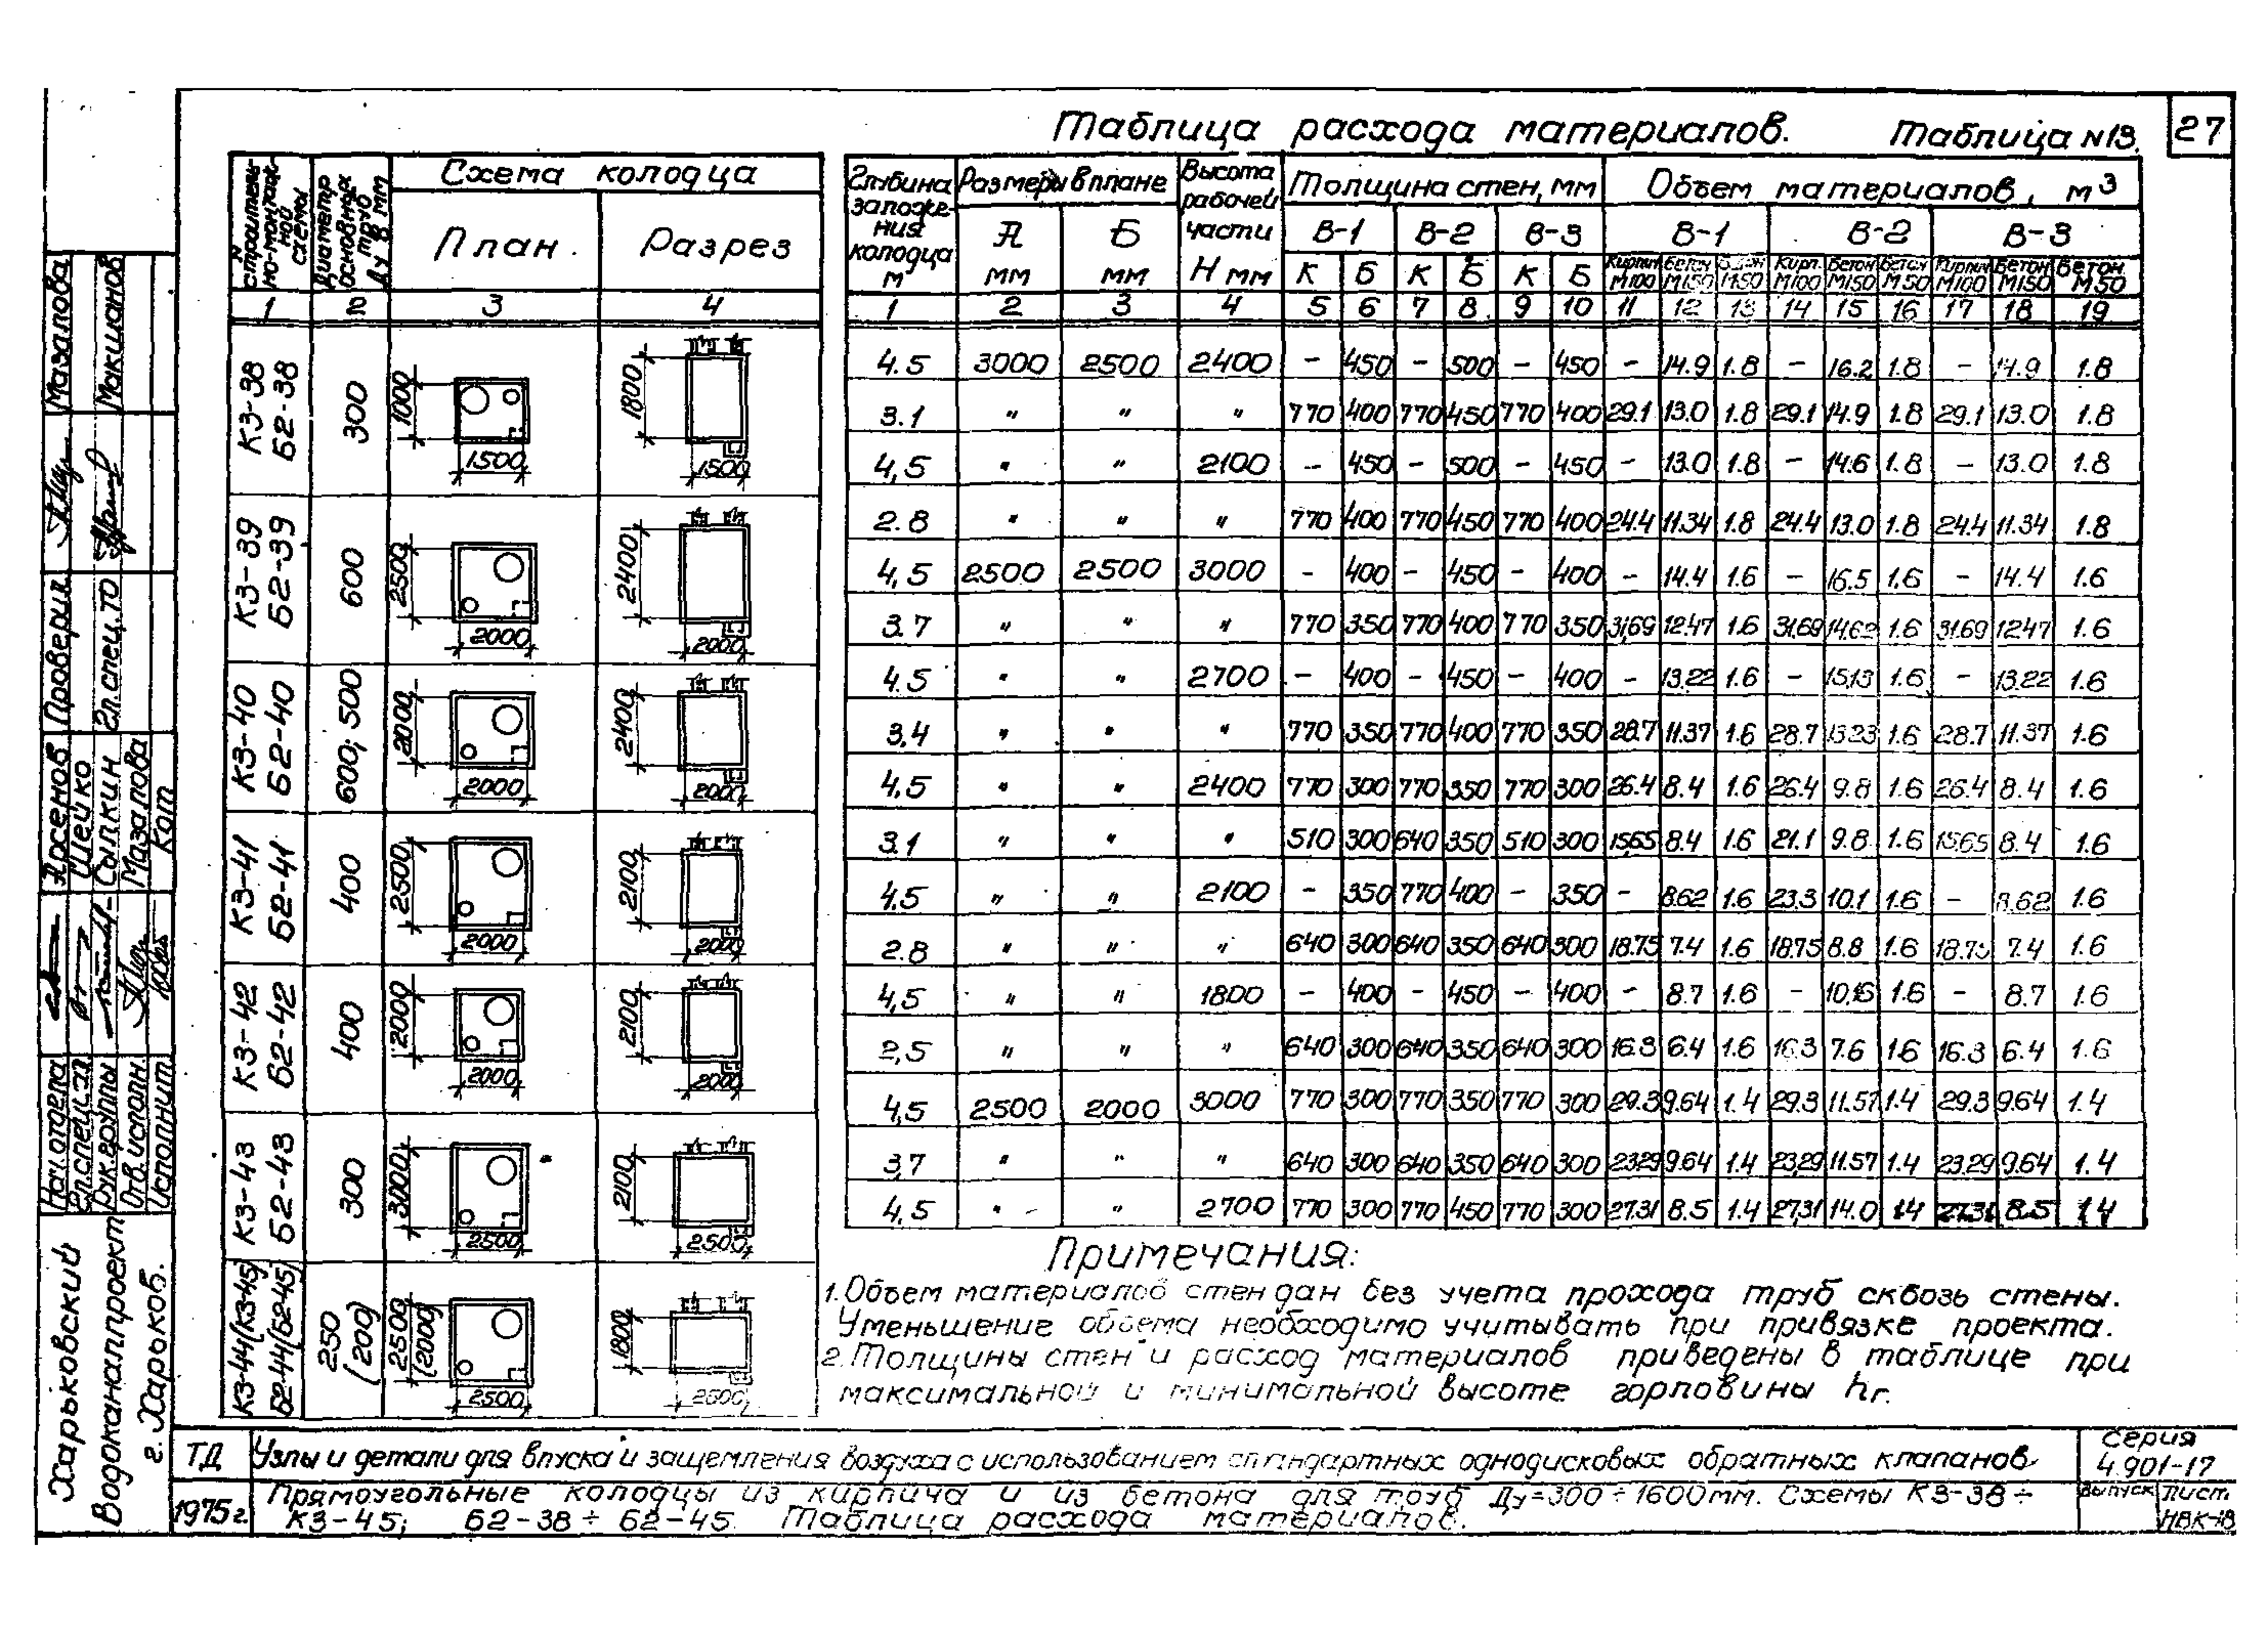 Таблица расхода материалов. Таблица №13. 27
N строительно-монтажной схемы | Диаметр основных труб Ду в мм | Схема колодца
План. | Разрез
1 | 2 | 3 | 4
КЗ-38 Б2-38 | 300 | 1000 1500 | 1800 1500
КЗ-39 Б2-39 | 600 | 2500 2000 | 2400 2000
КЗ-40 Б2-40 | 600; 500 | 2000 2000 | 2400 2000
КЗ-41 Б2-41 | 400 | 2500 2000 | 2100 2000
КЗ-42 Б2-42 | 400 | 2000 2000 | 2100 2000
КЗ-43 Б2-43 | 300 | 3000 2500 | 2100 2500
КЗ-44(КЗ-45) Б2-44(Б2-45) | 250 (200) | 2500 (2000) 2500 | 1800 2500
Глубина заложения колодца м | Размеры в плане | Высота рабочей части Н мм | Толщина стен, мм | Объем материалов, м3
А мм | Б мм | В-1 | В-2 | В-3 | В-1 | В-2 | В-3
К | Б | К | Б | К | Б | Кирпич М100 | Бетон М150 | Бетон М50 | Кирп. М100 | Бетон М150 | Бетон М50 | Кирпич М100 | Бетон М150 | Бетон М50
1 | 2 | 3 | 4 | 5 | 6 | 7 | 8 | 9 | 10 | 11 | 12 | 13 | 14 | 15 | 16 | 17 | 18 | 19
4.5 | 3000 | 2500 | 2400 | - | 450 | - | 500 | - | 450 | - | 14.9 | 1.8 | - | 16.2 | 1.8 | - | 14.9 | 1.8
3.1 | " | " | " | 770 | 400 | 770 | 450 | 770 | 400 | 29.1 | 13.0 | 1.8 | 29.1 | 14.9 | 1.8 | 29.1 | 13.0 | 1.8
4,5 | " | " | 2100 | - | 450 | - | 500 | - | 450 | - | 13.0 | 1.8 | - | 14.6 | 1.8 | - | 13.0 | 1.8
2.8 | " | " | " | 770 | 400 | 770 | 450 | 770 | 400 | 24.4 | 11.34 | 1.8 | 24.4 | 13.0 | 1.8 | 24.4 | 11.34 | 1.8
4,5 | 2500 | 2500 | 3000 | - | 400 | - | 450 | - | 400 | - | 14.4 | 1.6 | - | 16.5 | 1.6 | - | 14.4 | 1.6
3.7 | " | " | " | 770 | 350 | 770 | 400 | 770 | 350 | 31,69 | 12.47 | 1.6 | 31.69 | 14.62 | 1.6 | 31.69 | 12.47 | 1.6
4.5 | " | " | 2700 | - | 400 | - | 450 | - | 400 | - | 13.22 | 1.6 | - | 15,13 | 1.6 | - | 13.22 | 1.6
3,4 | " | " | " | 770 | 350 | 770 | 400 | 770 | 350 | 28.7 | 11.37 | 1.6 | 28.7 | 13.23 | 1.6 | 28.7 | 11.37 | 1.6
4,5 | " | " | 2400 | 770 | 300 | 770 | 350 | 770 | 300 | 26.4 | 8.4 | 1.6 | 26.4 | 9.8 | 1.6 | 26.4 | 8.4 | 1.6
3.1 | " | " | " | 510 | 300 | 640 | 350 | 510 | 300 | 15,65 | 8.4 | 1.6 | 21.1 | 9.8 | 1.6 | 15.65 | 8.4 | 1.6
4.5 | " | " | 2100 | - | 350 | 770 | 400 | - | 350 | - | 8.62 | 1.6 | 23.3 | 10.1 | 1.6 | - | 8.62 | 1.6
2.8 | " | " | " | 640 | 300 | 640 | 350 | 640 | 300 | 18.75 | 7.4 | 1.6 | 18.75 | 8.8 | 1.6 | 18.75 | 7.4 | 1.6
4,5 | " | " | 1800 | - | 400 | - | 450 | - | 400 | - | 8.7 | 1.6 | - | 10,16 | 1.6 | - | 8.7 | 1.6
2,5 | " | " | " | 640 | 300 | 640 | 350 | 640 | 300 | 16.3 | 6.4 | 1.6 | 16.3 | 7.6 | 1.6 | 16.3 | 6.4 | 1.6
4,5 | 2500 | 2000 | 3000 | 770 | 300 | 770 | 350 | 770 | 300 | 29.3 | 9.64 | 1.4 | 29.3 | 11.57 | 1.4 | 29.3 | 9.64 | 1.4
3,7 | " | " | " | 640 | 300 | 640 | 350 | 640 | 300 | 23.29 | 9.64 | 1.4 | 23,29 | 11.57 | 1.4 | 23.29 | 9.64 | 1.4
4,5 | " | " | 2700 | 770 | 300 | 770 | 450 | 770 | 300 | 27.31 | 8.5 | 1.4 | 27,31 | 14.0 | 1.4 | 27.31 | 8.5 | 1.4
Примечания:
1. Объем материалов стен дан без учета прохода труб сквозь стены.
Уменьшение объема необходимо учитывать при привязке проекта.
2. Толщины стен и расход материалов приведены в таблице при
максимальной и минимальной высоте горловины hг.
ТД | Узлы и детали для впуска и защемления воздуха с использованием стандартных однодисковых обратных клапанов. | Серия 4.901-17
1975г. | Прямоугольные колодцы из кирпича и из бетона для труб Ду=300÷1600мм. Схемы КЗ-38÷
КЗ-45; Б2-38÷Б2-45. Таблица расхода материалов. | Выпуск | Лист НВК-18
Мазалова | Макшанов
Проверил | Гл.спец.ТО
Арсенов
Шейко
Сылкин
Мазалова
Кот
Нач.отдела
Гл.специал.
Рук.группы
Отв.исполн.
Исполнит.
Харьковский
Водоканалпроект
г. Харьков.